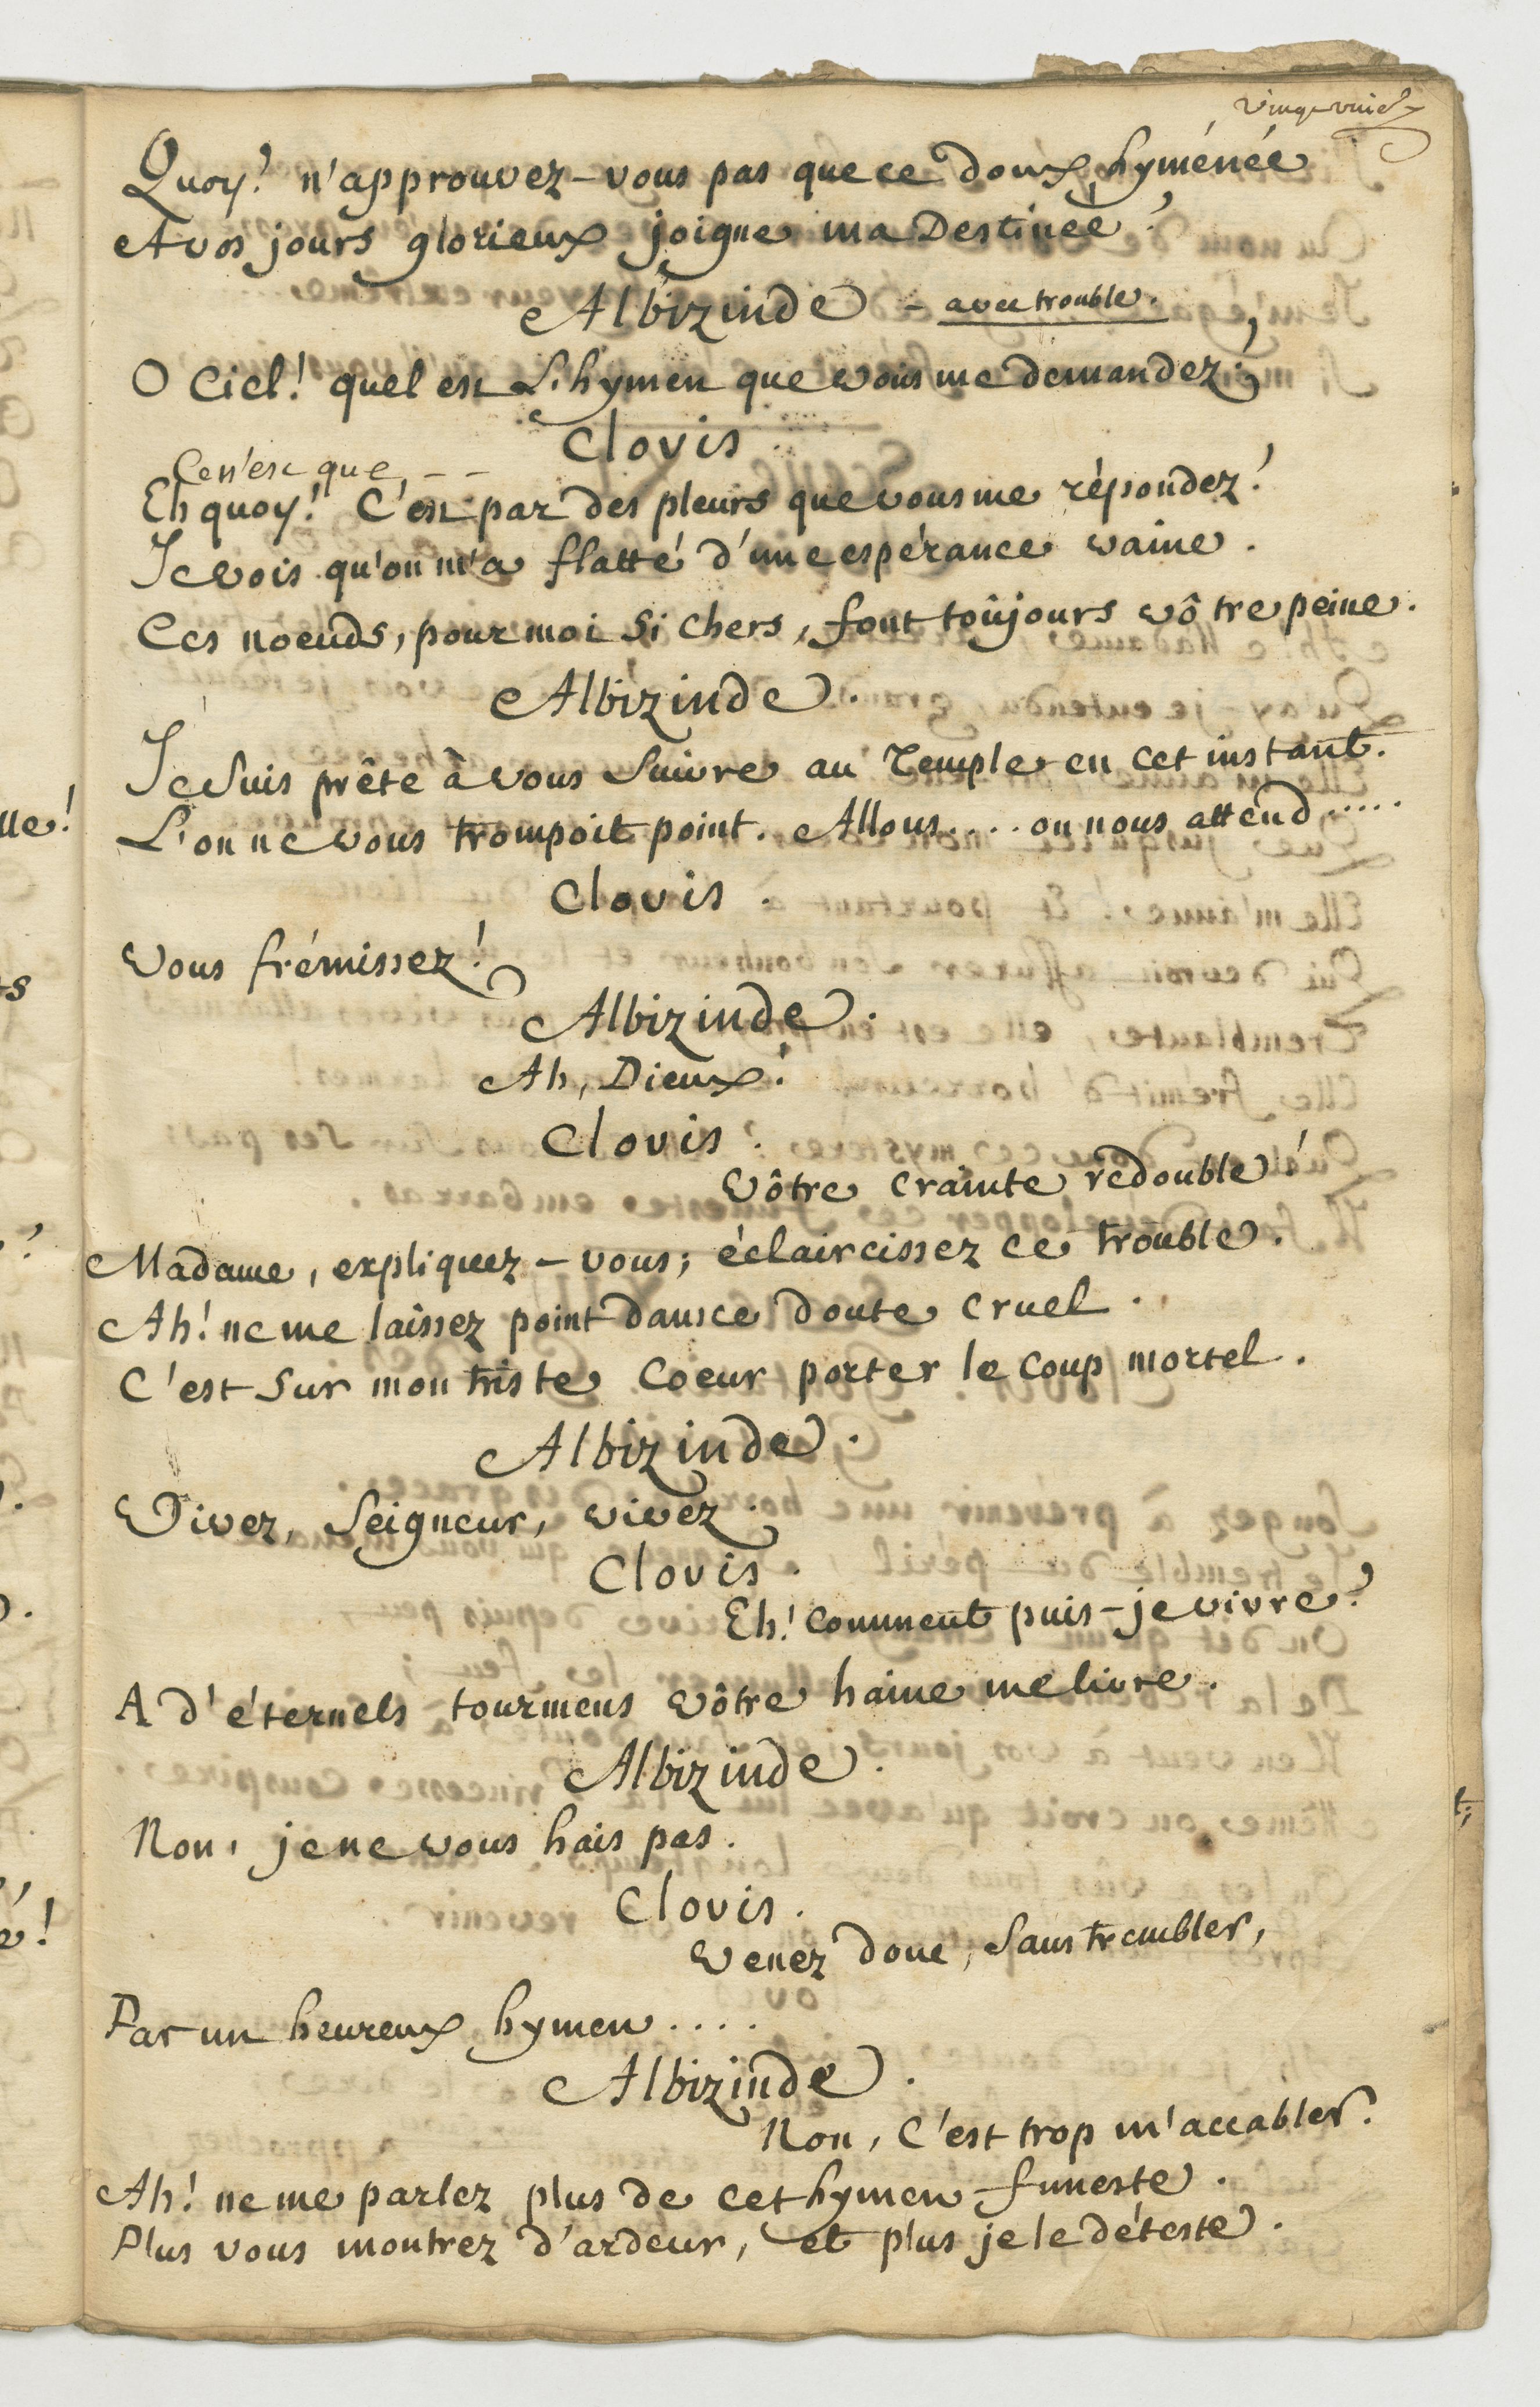 Quoy! n'approuvez-vous pas que ce doux hyménée
A vos jours glorieux joigne ma Destinée?
Albizinde - avec trouble.
O Ciel! quel est L'hymen que vous me demandez?
Clovis
Ce n'est que - -
Eh quoy! C'est par des pleurs que vous me répondez!
Je vois qu'on m'a flatté d'une espérance vaine.
Ces noeuds, pour moi si chers, font toûjours vôtre peine.
Albizinde.
Je suis prête à vous suivre au Temple en cet instant.
L'on ne vous trompoit point. Allons.... on nous attend.....
Clovis.
Vous frémissez!
Albizinde.
Ah, Dieux!
Clovis.
Vôtre crainte redouble!
Madame, expliquez-vous; éclaircissez ce trouble.
Ah! ne me laissez point dans ce doute cruel.
C'est sur mon triste Coeur porter le coup mortel.
Albizinde.
Vivez, Seigneur, vivez.
Clovis.
Eh! comment puis-je vivre?
A d'éternels tourmens vôtre haine me livre.
Albizinde.
Non, je ne vous hais pas.
Clovis.
Venez donc, sans trembler,
Par un heureux hymen....
Albizinde.
Non, C'est trop m'accabler.
Ah! ne me parlez plus de cet hymen funeste.
Plus vous montrez d'ardeur, et plus je le déteste.